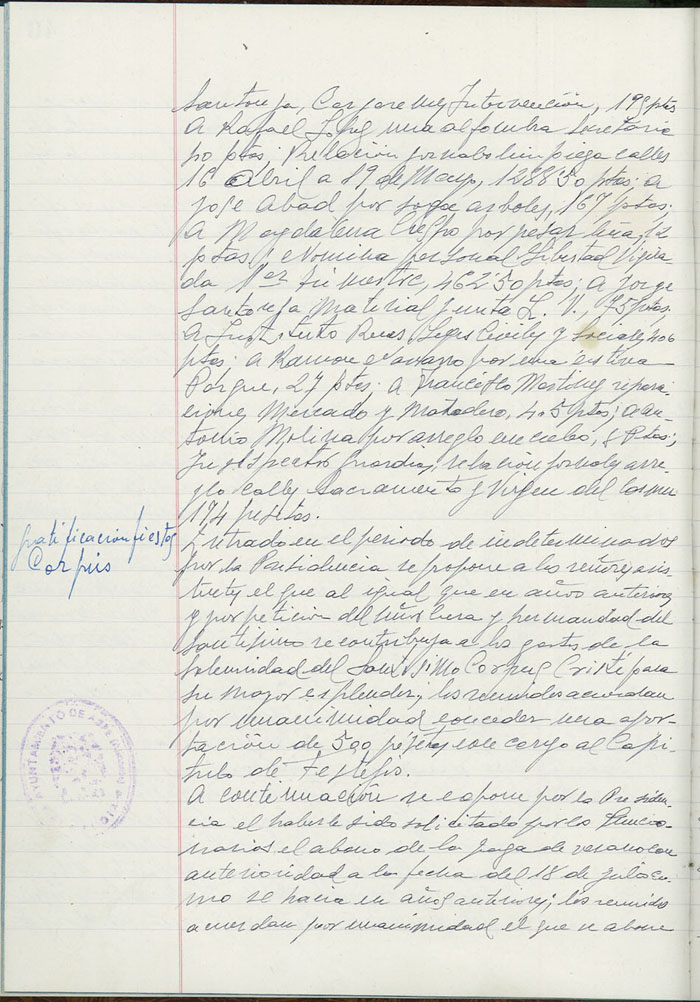 Santonja, Carpore Intervención, 195 ptas
A Rafael López una alfombra Secretaria
90 ptas; Relación jornales limpieza calles
16 Abril a 19 de Mayo, 1288'50 ptas; a
José Abad por soga arboles, 167 ptas.
A Magdalena Crespo por pesar leña, 12
ptas, Nomina personal Libertad Vigila
da 1er trimestre, 462'50 ptas; a Jorge
Santonja Material Junta L. V., 75 ptas.
A Instituto Reus, Leyes Civiles y Sociales 406
ptas. a Ramon Navarro por una
Parque, 27 ptas. a Francisco Martinez repara-
ciones Mercado y Matadero, 405 ptas; a An
tonio Molina por arreglo un cubo, 8 Ptas;
relación jornales arre
glo calles Sacramento y Virgen del
174 pesetas.
gratificación fiestas
Corpus
Entrado en el periodo de indeterminados
por la Presidencia se propone a los señores asis
tentes el que al igual que en años anteriores
y por peticion del Sr. Cura y hermandad del
Santisimo se contribuya a los gastos de la
solemnidad del Santisimo Corpus Cristi para
su mayor esplendor, los reunidos acuerdan
por unanimidad conceder una apor-
tación de 500 pesetas con cargo al Capi-
tulo de Festejos.
A continuación se expone por la Presiden
cia el haberle sido solicitado por los funcio-
narios el abono de la paga de verano con
anterioridad a la fecha del 18 de Julio co-
mo se hacia en años anteriores; los reunidos
acuerdan por unanimidad el que se abone
AYUNTAMIENTO DE ASPE